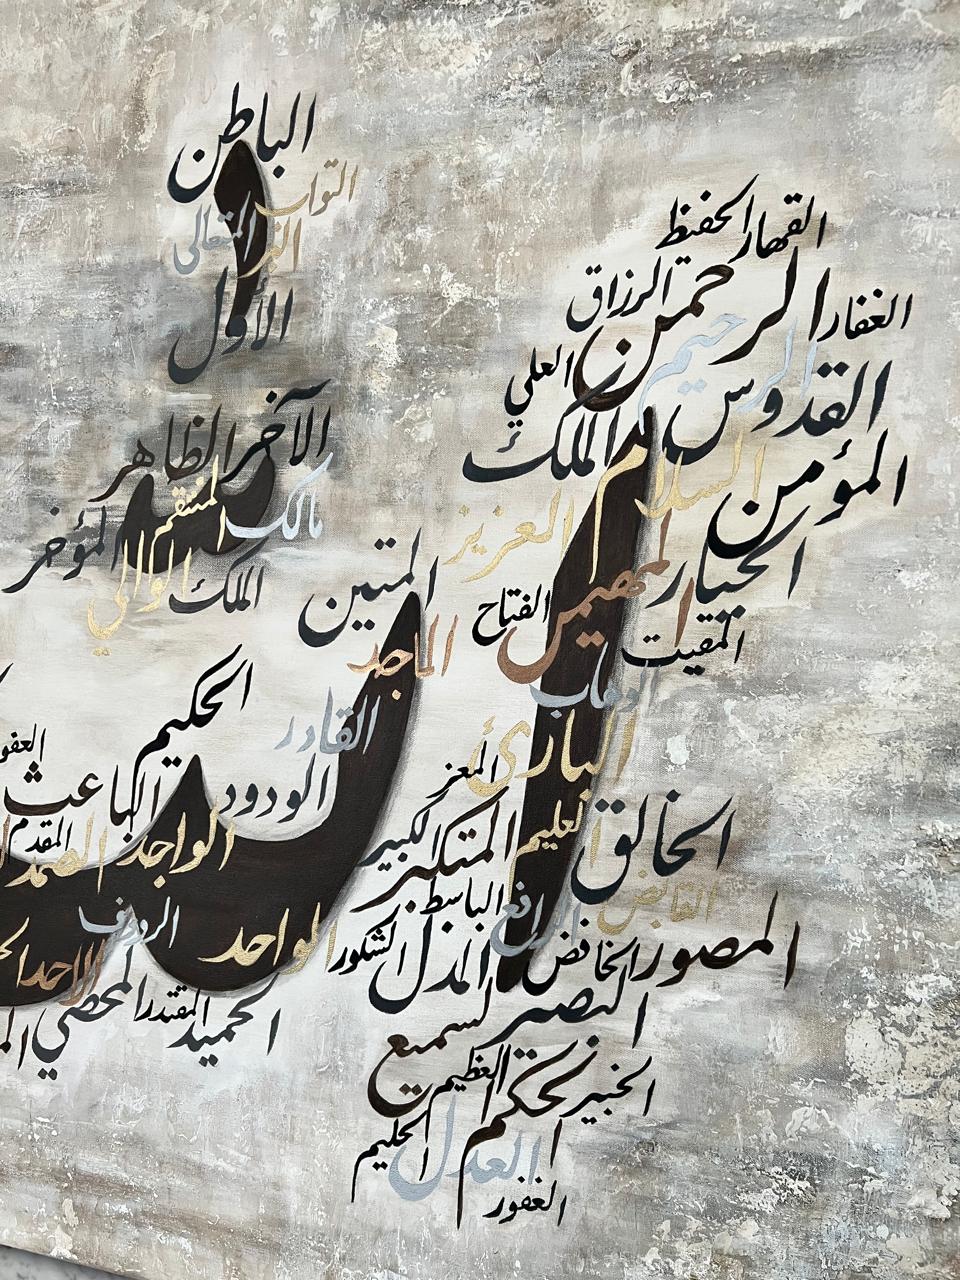 الباطن
التواب
البر
المتعالى
الأول
الآخر
الظاهر
مالك
المنتقم
المؤخر
الملك
الوالي
القهار
الحفيظ
الرزاق
الرحمن
الغفار
الرحيم
العلي
القدوس
الملك
السلام
المؤمن
العزيز
المتين
الفتاح
المهيمن
المقيت
الماجد
الوهاب
الحكيم
القادر
البارئ
العفو
المعز
الباعث
الودود
العليم
الخالق
المقدم
الصمد
الواجد
الكبير
المتكبر
القابض
الباسط
الرافع
الرووف
الواحد
الشكور
المذل
الخافض
المصور
الاحد
المحصي
المقتدر
الحميد
السميع
العظيم
الخبير
العدل
الحليم
الغفور